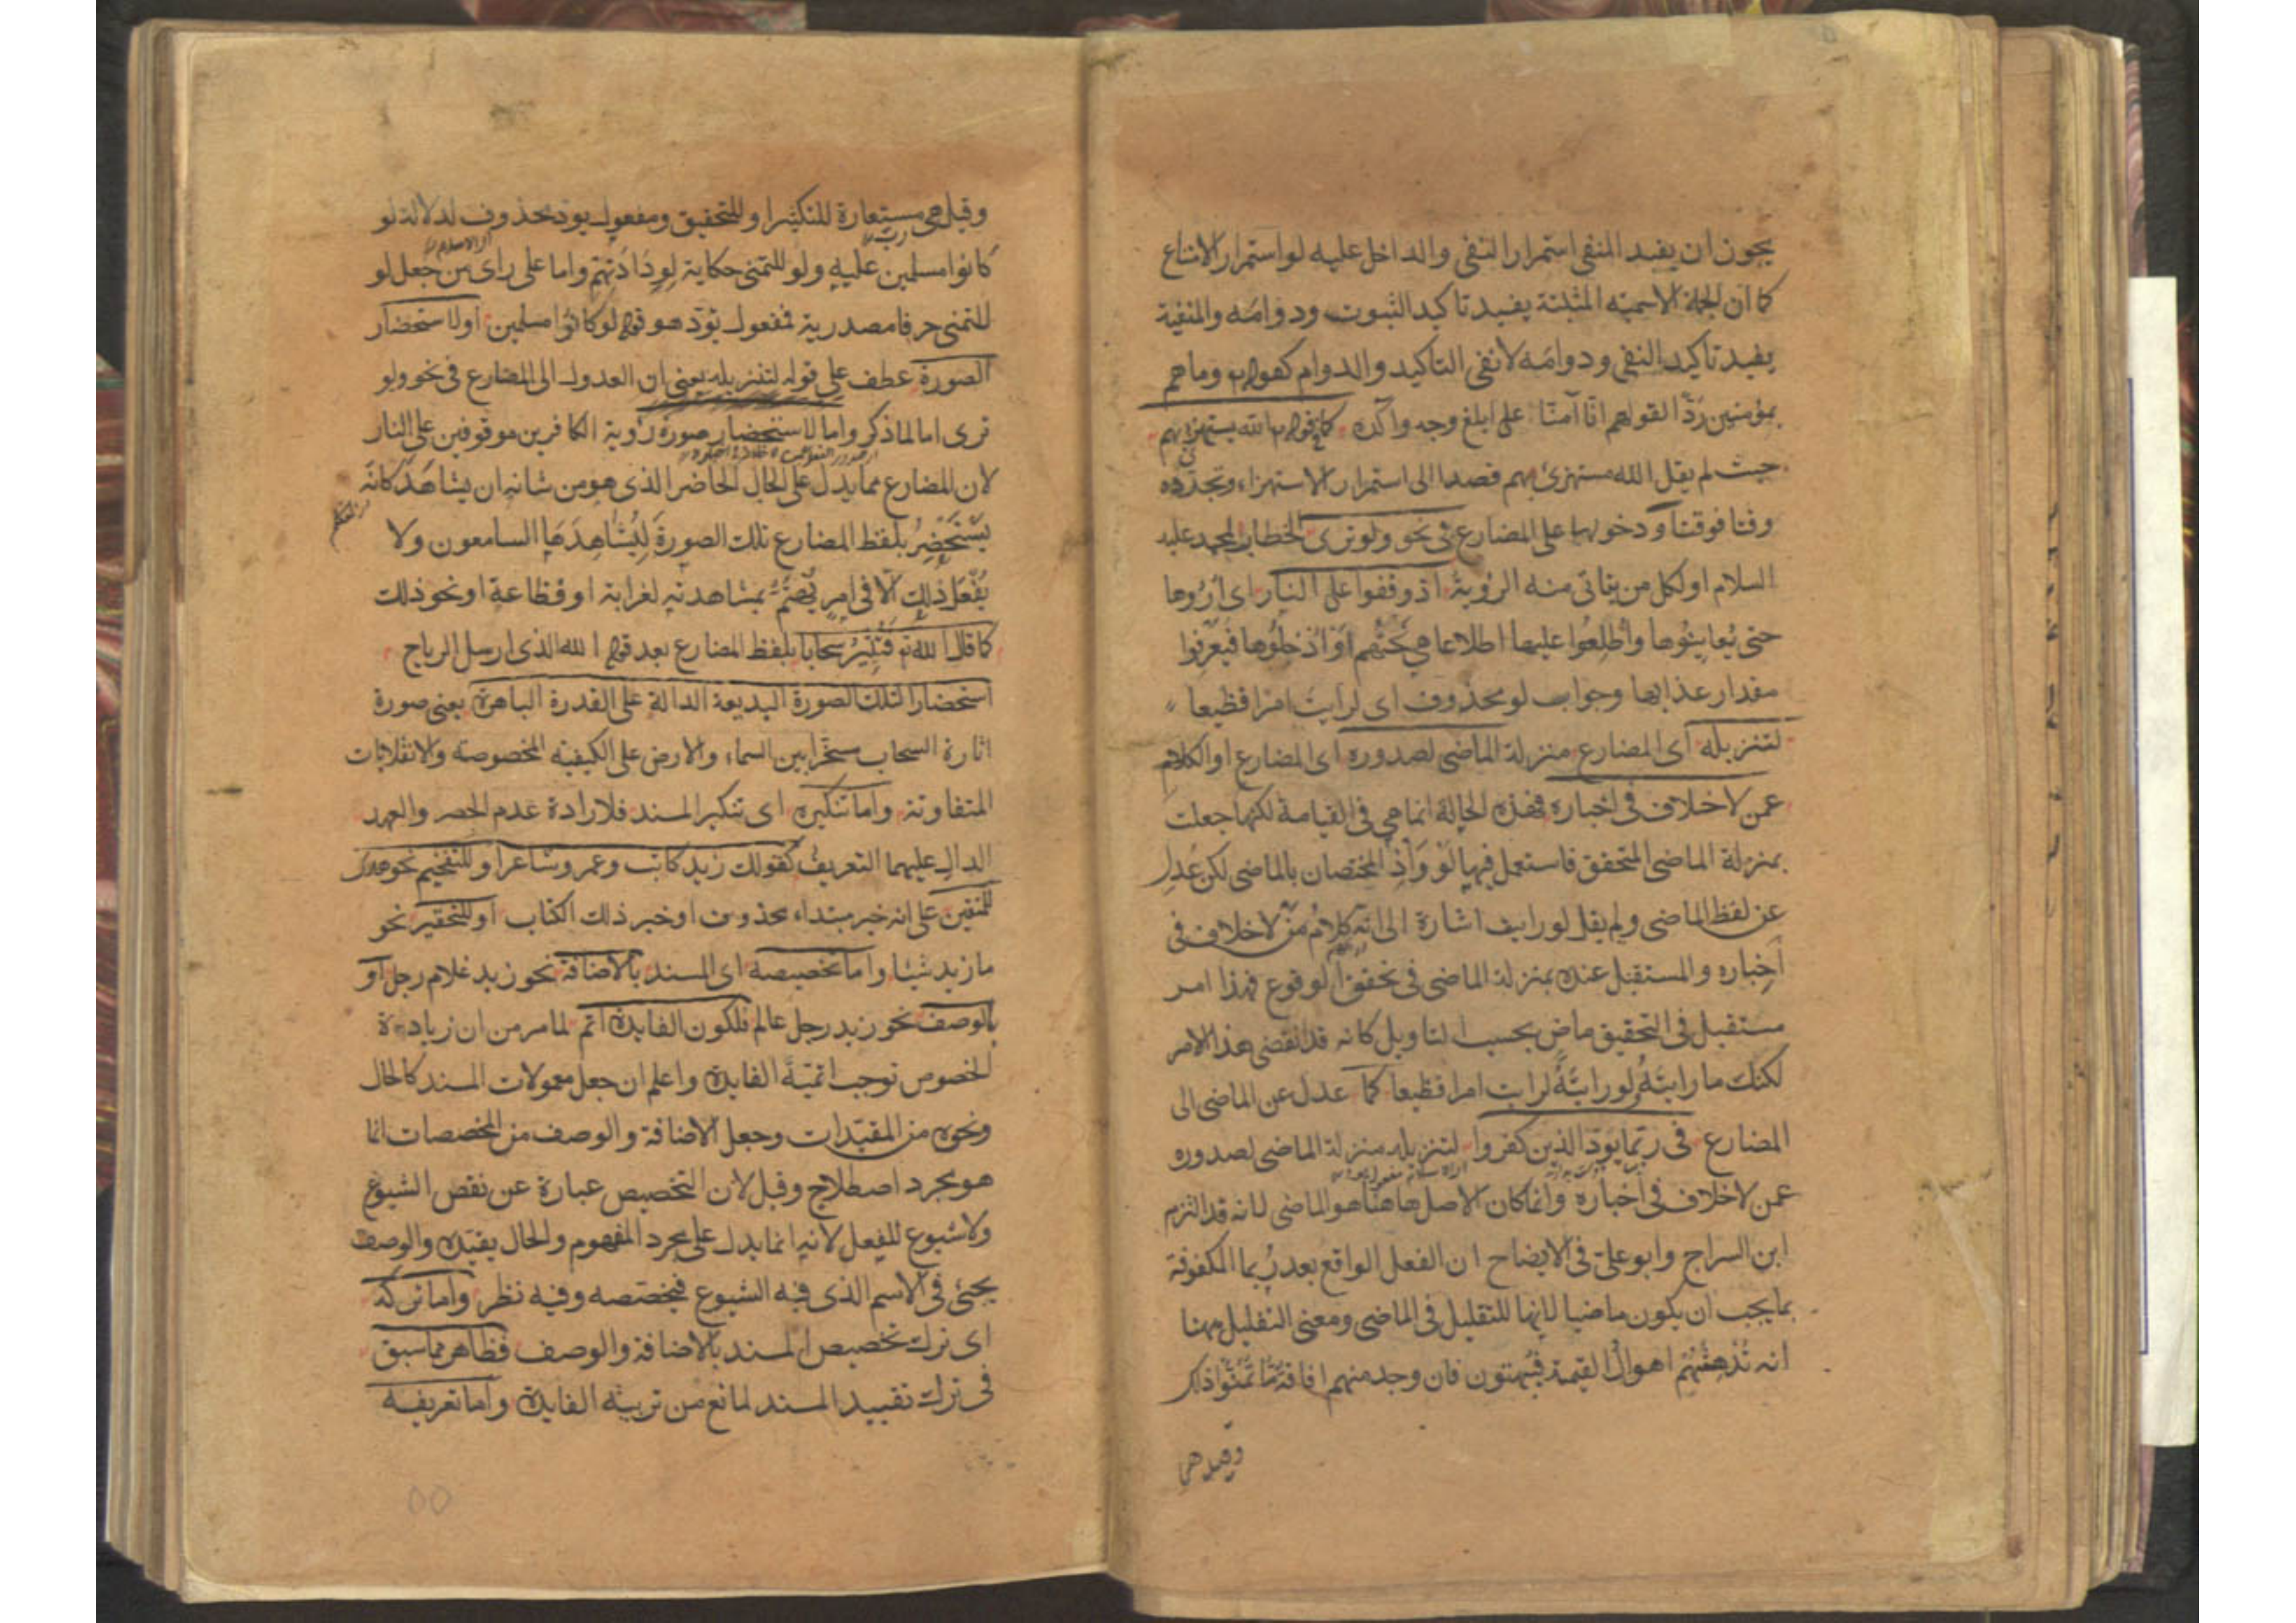 يجوز ان يفيد المنفى استمرار النفى والداخل عليه لو استمرار الامتناع
كما ان الجملة الاسمية المثبتة يفيد تاكيد الثبوت ودوامه والمنفية
يفيد تاكيد النفى ودوامه لا نفى التاكيد والدوام كقوله تع وما هم
بمؤمنين ردّا لقولهم انّا آمنّا على ابلغ وجه وآكده كما فى قوله تع الله يستهزئ بهم
حيث لم يقل الله مستهزئ بهم قصدا الى استمرار الاستهزاء وتجدّده
وقتا فوقتا ودخولها على المضارع فى نحو ولو ترى الخطاب لمحمد عليه
السلام او لكل من يتاتى منه الرؤية اذ وقفوا على النار اى اُرُوها
حتى يُعاينُوها وأُطلِعُوا عليها اطلاعا هى تَحْتَهم اوَ اُدْخِلُوها فيَعْرِفُوا
مقدار عذابها وجواب لو محذوف اى لرايتَ امرا فظيعا
لتنزيله اى المضارع منزلة الماضى لصدوره اى المضارع او الكلام
عمن لا خلاف فى اخباره فهذه الحالة انما هى فى القيامة لكنها جعلت
بمنزلة الماضى المتحقق فاستعمل فيها لَوْ وَاِذْ المختصان بالماضى لكن عُدِل
عن لفظ الماضى ولم يقل لو رايت اشارة الى انّه كلامُ مَنْ لا خلاف فى
اخباره والمستقبل عنده بمنزلة الماضى فى تحقق الوقوع فهذا امر
مستقبل فى التحقيق ماض بحسب التاويل كانه قد انقضى هذا الامر
لكنك ما رايتَهُ ولو رايتَهُ لرايت امرا فظيعا كما عدل عن الماضى الى
المضارع فى ربّما يَودّ الذين كفروا لتنزيله منزلة الماضى لصدوره
عمن لا خلاف فى اخباره وانما كان الاصل هاهنا هو الماضى لانه قد التزم
ابن السراج وابو علىّ فى الايضاح ان الفعل الواقع بعد رُبّما المكفوفة
بما يجب ان يكون ماضيا لانها للتقليل فى الماضى ومعنى التقليل ههنا
انه تُدْهِشُهُم اهوالُ القيمة فيُبْهتون فان وجد منهم افاقةٌ مّا تَمَنَّوْا ذلك
وقيل هى
وقيل هى مستعارة للتكثير او للتحقيق ومفعول يود محذوف لدلالة لو
كانوا مسلمين عليه ولو للتمنى حكاية لوِدَادَتِهم واما على راى من جعل لو
للتمنى حرفا مصدرية فمفعول يودّ هو قوله لو كانوا مسلمين او لاستحضار
الصورة عطف على قوله لتنزيله يعنى ان العدول الى المضارع فى نحو ولو
ترى اما لما ذكر واما لاستحضار صورة رُوية الكافرين موقوفين على النار
لان المضارع مما يدل على الحال الحاضر الذى هو من شانه ان يشاهَدَ كانّه
يَسْتَحْضِرُ بلفظ المضارع تلك الصورةَ لِيُشاهِدَهَا السامعون ولا
يُفْعَل ذلك الّا فى امرٍ يُهتَمُّ بمشاهدته لغرابة او فظاعة او نحو ذلك
كما قال الله تع فَتُثيْرُ سحابا بلفظ المضارع بعد قوله الله الذى ارسل الرياح
استحضارا لتلك الصورة البديعة الدالة على القدرة الباهرة يعنى صورة
اثارة السحاب مسخّرا بين السماء والارض على الكيفية المخصوصة والانقلابات
المتفاوتة واما تنكيره اى تنكير المسند فلارادة عدم الحصر والعهد
الدال عليهما التعريفُ كقولك زيد كاتب وعمرو شاعر او للتفخيم نحو هدى
للمتقين على انه خبر مبتداء محذوف او خبر ذلك الكتاب او للتحقير نحو
ما زيد شيئا واما تخصيصه اى المسند بالاضافة نحو زيد غلام رجل او
بالوصف نحو زيد رجل عالم فلكون الفايدة اتم لما مر من ان زيادة
الخصوص توجب اتميّة الفايدة واعلم ان جعل معمولات المسند كالحال
ونحوه من المقيّدات وجعل الاضافة والوصف من المخصصات انما
هو مجرد اصطلاح وقيل لان التخصيص عبارة عن نقص الشيوع
ولا شيوع للفعل لانه انما يدل على مجرد المفهوم والحال يقيّده والوصف
يجئى فى الاسم الذى فيه الشيوع فيخصّصه وفيه نظر واما تركه
اى ترك تخصيص المسند بالاضافة والوصف فظاهر مما سبق
فى ترك تقييد المسند لمانع من تربية الفايدة واما تعريفه